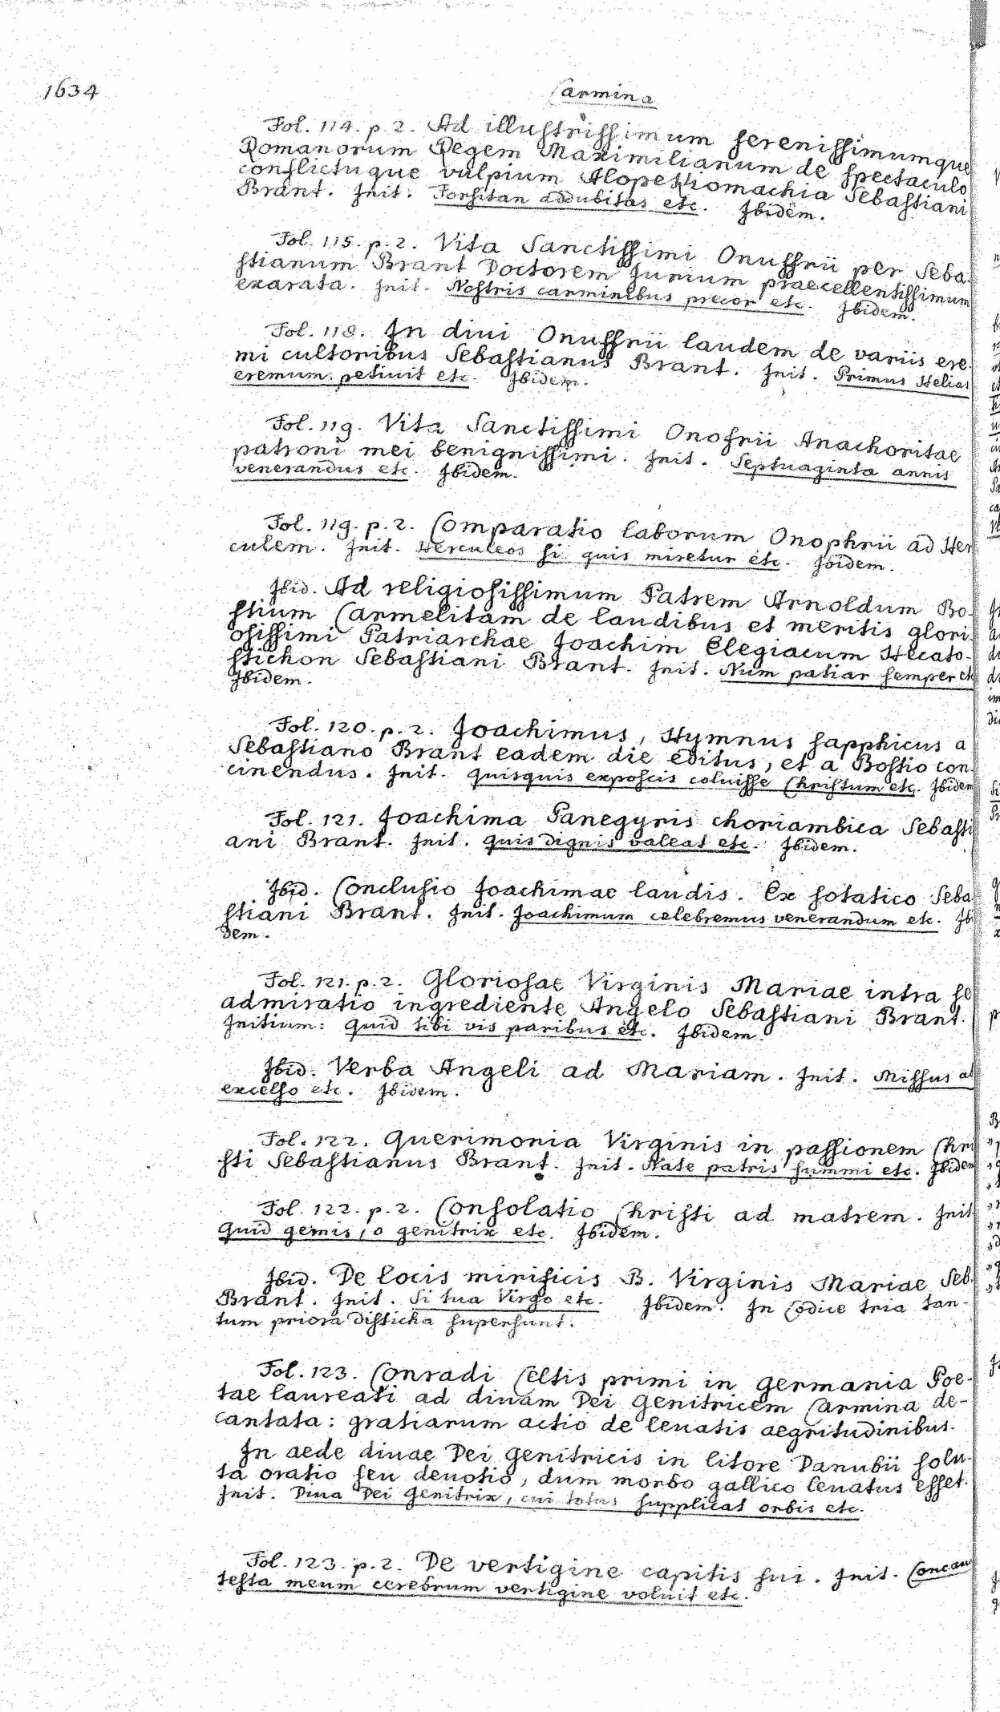 1634
Carmina
Fol. 114. p. 2. Ad illuſtriſſimum ſereniſſimumque
Romanorum Regem Maximilianum de ſpectaculo
conflictuque vulpium Alopekiomachia Sebaſtiani
Brant. Init. Forſitan addubitas etc. Ibidem.
Fol. 115. p. 2. Vita Sanctiſſimi Onuffrii per Seba-
ſtianum Brant Doctorem Jurium praecellentiſſimum
exarata. Init. Noſtris carminibus precor etc. Ibidem.
Fol. 118. In diui Onuffrii laudem de variis ere-
mi cultoribus Sebaſtianus Brant. Init. Primus Helias
eremum petiuit etc. Ibidem.
Fol. 119. Vita Sanctiſſimi Onofrii Anachoritae
patroni mei benigniſſimi. Init. Septuaginta annis
venerandus etc. Ibidem.
Fol. 119. p. 2. Comparatio laborum Onophrii ad Her
culem. Init. Herculeos ſi quis miretur etc. Ibidem.
Ibid. Ad religioſiſſimum Patrem Arnoldum Bo-
ſtium Carmelitam de laudibus et meritis glori-
oſiſſimi Patriarchae Joachim Elegiacum Hecato-
ſtichon Sebaſtiani Brant. Init. Num patiar ſemper etc
Ibidem.
Fol. 120. p. 2. Joachimus, Hymnus ſapphicus a
Sebaſtiano Brant eadem die editus, et a Boſtio con-
cinendus. Init. Quisquis expoſcis coluiſſe Chriſtum etc. Ibidem
Fol. 121. Joachima Panegyris choriambica Sebaſti
ani Brant. Init. Quis dignis valeat etc. Ibidem.
Ibid. Concluſio Joachimae laudis. Ex ſotatico Seba
ſtiani Brant. Init. Joachimum celebremus venerandum etc. Ibi
dem.
Fol. 121. p. 2. Glorioſae Virginis Mariae intra ſe
admiratio ingrediente Angelo Sebaſtiani Brant.
Initium: Quid tibi vis paribus etc. Ibidem.
Ibid. Verba Angeli ad Mariam. Init. Miſſus ab
excelſo etc. Ibidem.
Fol. 122. Querimonia Virginis in paſſionem Chri
ſti Sebaſtianus Brant. Init. Nate patris ſummi etc. Ibidem
Fol. 122. p. 2. Conſolatio Chriſti ad matrem. Init
Quid gemis, o genitrix etc. Ibidem.
Ibid. De locis mirificis B. Virginis Mariae Seb.
Brant. Init. Si tua Virgo etc. Ibidem. In Codice tria tan-
tum priora diſticha ſuperſunt.
Fol. 123. Conradi Celtis primi in Germania Poe-
tae laureati ad diuam Dei Genitricem Carmina de-
cantata: gratiarum actio de leuatis aegritudinibus.
In aede diuae Dei Genitricis in litore Danubii ſolu-
ta oratio ſeu deuotio, dum morbo gallico leuatus eſſet.
Init. Diua Dei Genitrix, cui totus ſupplicat orbis etc.
Fol. 123. p. 2. De vertigine capitis ſui. Init.
teſta meum cerebrum vertigine voluit etc.